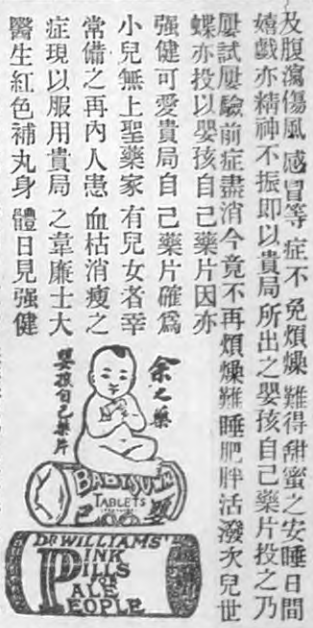 及腹瀉傷風感冒等症不免煩燥難得甜蜜之安睡日間
嬉戲亦精神不振即以貴局所出之嬰孩自己藥片投之乃
屢試屢驗前症盡消今竟不再煩燥難睡肥胖活潑次兒世
蝶亦投以嬰孩自己藥片因亦
强健可愛貴局自己藥片確爲
小兒無上聖藥家有兒女者幸
常備之再內人患血枯消瘦之
症現以服用貴局之韋廉士大
醫生紅色補丸身體日見强健
余之藥
嬰孩自己藥片
BABY'S OWN
TABLETS
DR WILLIAMS'
PINK
PILLS
FOR
PALE
PEOPLE